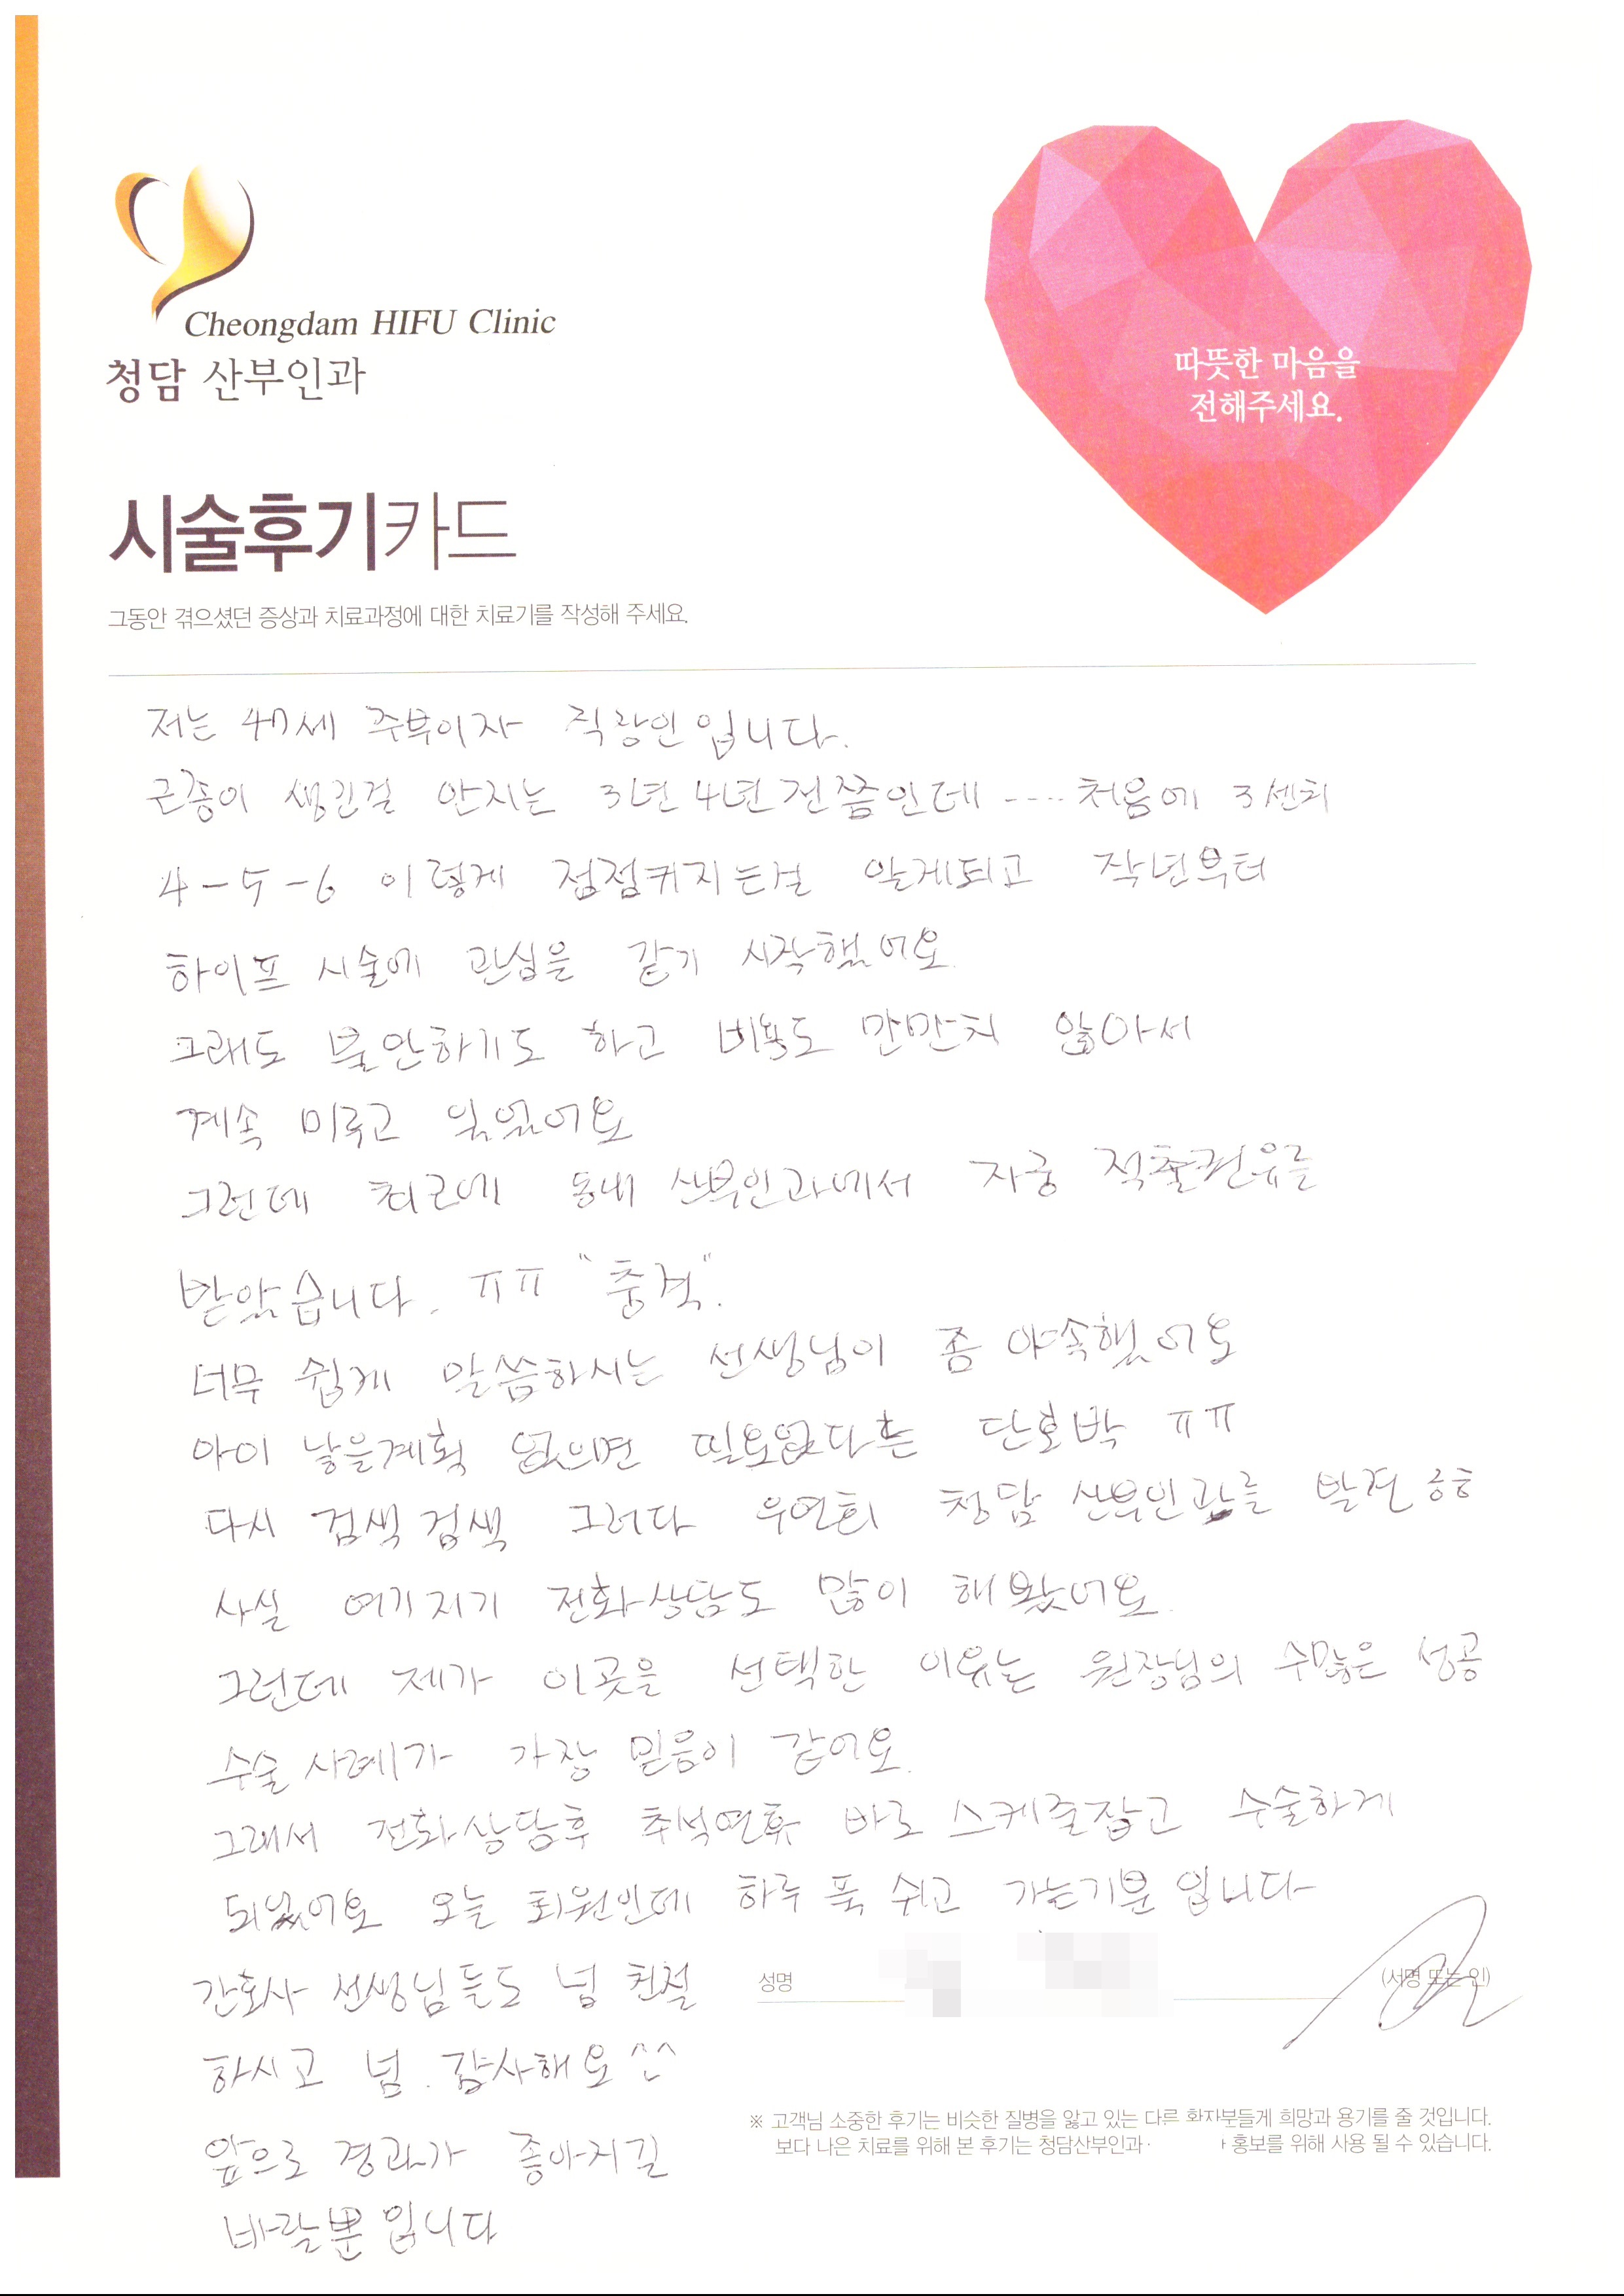 Cheongdam HIFU Clinic
청담 산부인과
따뜻한 마음을
전해주세요.
시술후기카드
그동안 겪으셨던 증상과 치료과정에 대한 치료기를 작성해 주세요.
저는 47세 주부이자 직장인입니다.
근종이 생긴걸 안지는 3년 4년전쯤인데 .... 처음에 3센치
4-5-6 이렇게 점점커지는걸 알게되고 작년부터
하이프 시술에 관심을 갖기 시작했어요
그래도 불안하기도 하고 비용도 만만치 않아서
계속 미루고 있었어요
그런데 최근에 동네 산부인과에서 자궁 적출권유를
받았습니다. ㅠㅠ "충격".
너무 쉽게 말씀하시는 선생님이 좀 야속했어요
아이 낳을계획 없으면 필요없다는 단호박 ㅠㅠ
다시 검색검색 그러다 우연히 청담 산부인과를 발견 ㅎㅎ
사실 여기저기 전화상담도 많이 해봤어요.
그런데 제가 이곳을 선택한 이유는 원장님의 수많은 성공
수술 사례가 가장 믿음이 갔어요.
그래서 전화상담후 추석연휴 바로 스케줄잡고 수술하게
되었어요 오늘 퇴원인데 하루 푹 쉬고 가는기분입니다
간호사 선생님들도 넘 친절
하시고 넘. 감사해요^^
앞으로 경과가 좋아지길
바랄뿐입니다
성명
(서명 또는 인)
※ 고객님 소중한 후기는 비슷한 질병을 앓고 있는 다른 환자분들게 희망과 용기를 줄 것입니다.
보다 나은 치료를 위해 본 후기는 청담산부인과 홍보를 위해 사용 될 수 있습니다.